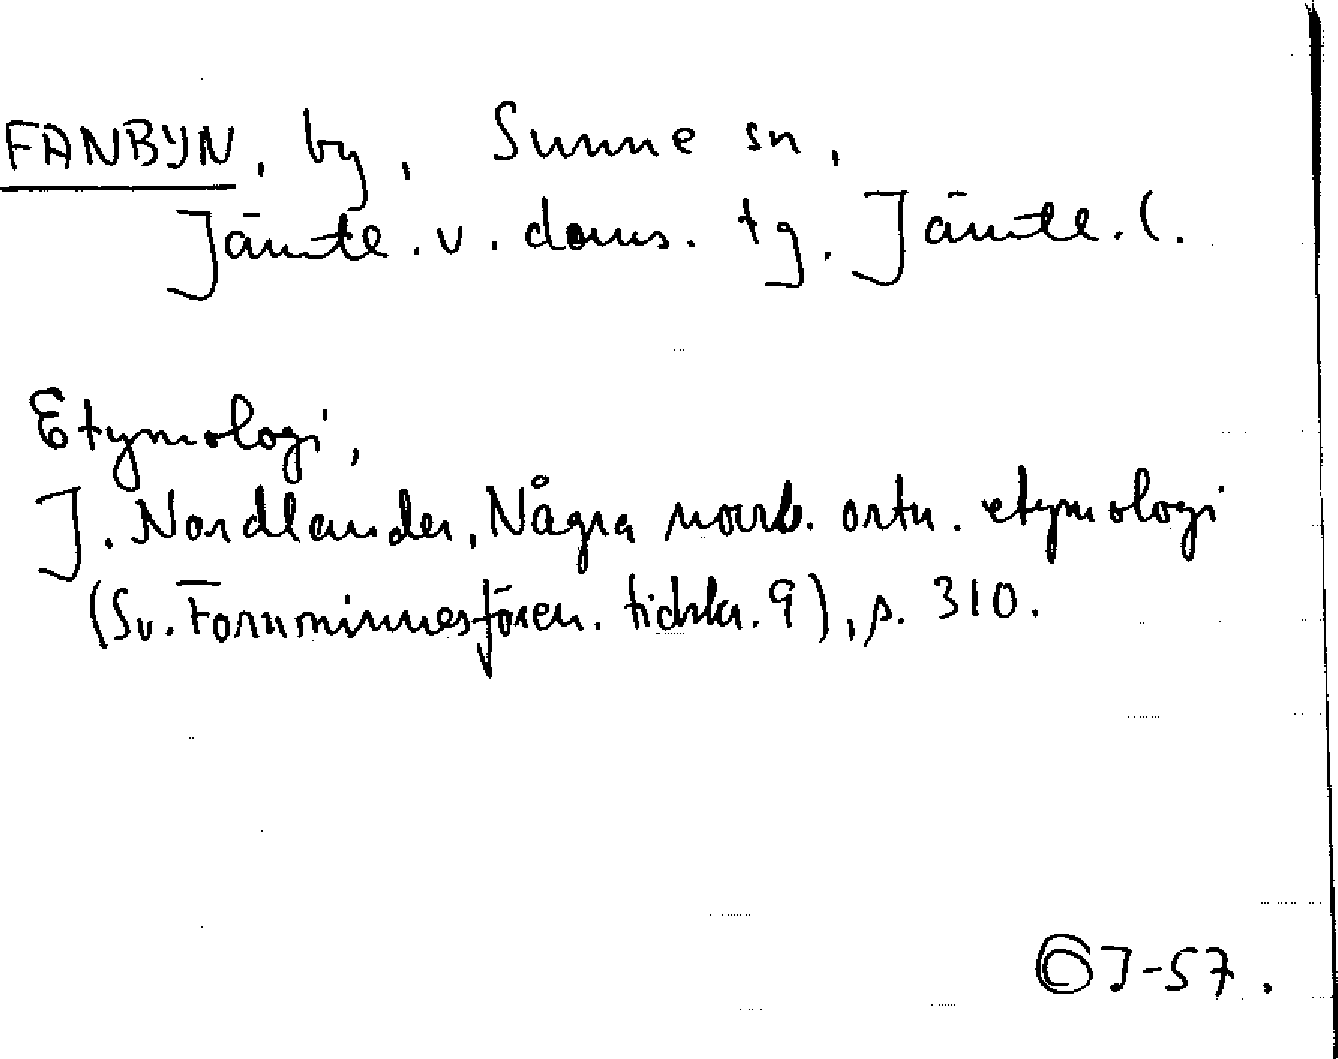 FANBYN, by, Sunne sn,
Jämtl. v. doms. tg. Jämtl. l.
Etymologi,
J. Nordlander, Några norrl. ortn. etymologi
(Sv. Fornminnesfören. tidskr. 9), s. 310.
J-57.